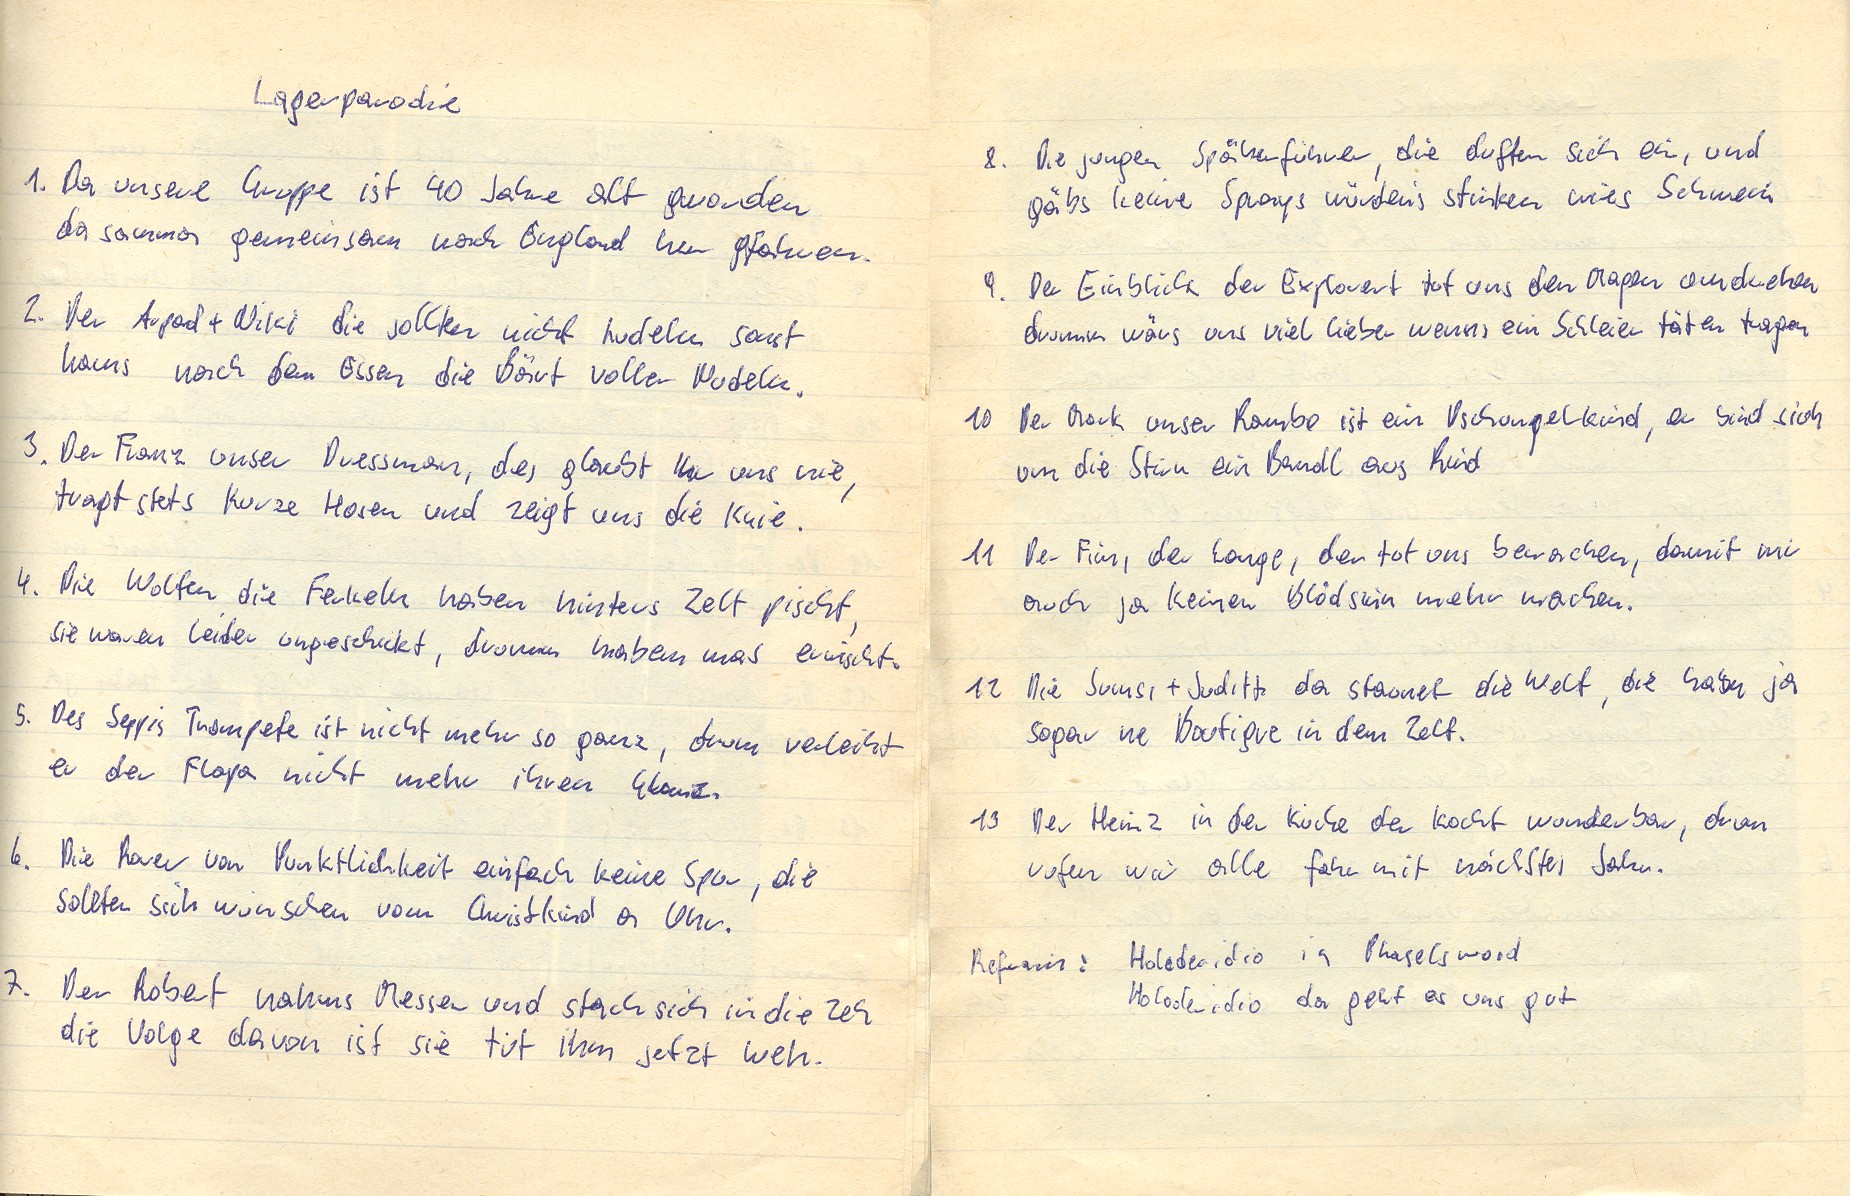 Lagerparodie
1. Da unsere Gruppe ist 40 Jahre alt gworden
da sammar gemeinsam nach England her gfahren.
2. Der Arpad + Niki die sollten nicht hudeln sonst
hams nach dem Essen die Bärt voller Nudeln.
3. Der Franz unser Dressman, des glaubt ihr uns nie,
tragt stets Kurze Hosen und zeigt uns die Knie.
4. Die Wolfen die Ferkeln haben hinters Zelt pischt,
sie waren leider ungeschickt, drumm habem mas erwischt.
5. Des Seppis Trompete ist nicht mehr so ganz, drum verleiht
er der Flaga nicht mehr ihren Glanz.
6. Die Rover von Punktlichkeit einfach keine Spur, die
sollten sich wünschen vom Christkind a Uhr.
7. Der Robert nahms Messer und stach sich in die Zeh
die Volge davon ist sie tut ihm jetzt weh.
8. Die jungen Späherführer, die duften sich ein, und
gäbs keine Sprays würdens stinken wies Schwein
9. Der Einblick der Explorert tut uns den Magen umdrehen
drumm wärs uns viel lieber wenns ein Schleier täten tragen
10 Der Mark unser Rambo ist ein Dschungelkind, er bind sich
um die Stirn ein Bandl aus Rind
11 Der Finn, der Lange, der tut uns bewachen, damit wir
auch ja keinen Blödsinn mehr machen.
12 Die Sumsi + Judith da staunet die Welt, die haben ja
sogar ne Boutique in dem Zelt.
13 Der Heinz in der Küche der kocht wunderbar, drum
rufen wir alle fahr mit nächstes Jahr.
Refrain: Holadaridio in
Holadaridio da geht es uns gut